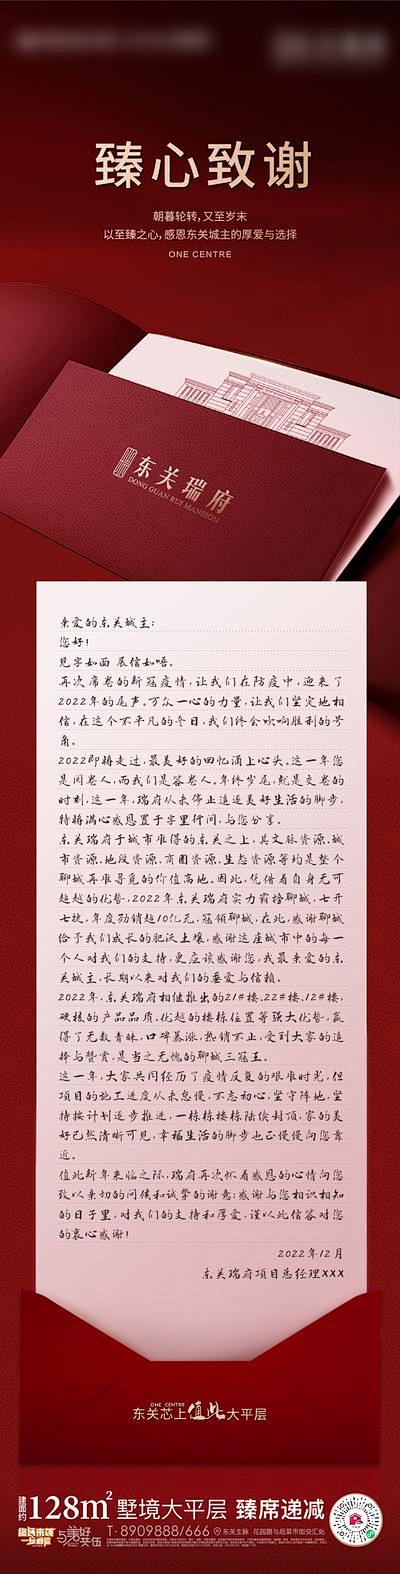 臻心致谢
朝暮轮转,又至岁末
以至臻之心,感恩东关城主的厚爱与选择
ONE CENTRE
东关瑞府
DONG GUAN RUI MANSION
亲爱的东关城主:
您好!
见字如面 展信如晤。
再次席卷的新冠疫情,让我们在防疫中,迎来了
2022年的尾声。万众一心的力量,让我们坚定地相
信,在这个不平凡的冬日,我们终会吹响胜利的号
角。
2022即将走过,最美好的回忆涌上心头。这一年您
是阅卷人,而我们是答卷人。年终岁尾,就是交卷的
时刻,这一年,瑞府从未停止追逐美好生活的脚步,
特将满心感恩置于字里行间,与您分享。
东关瑞府于城市难得的东关之上,其文脉资源、城
市资源、地段资源、商圈资源、生态资源等均是整个
聊城再难寻觅的价值高地。因此,凭借着自身无可
超越的优势,2022年东关瑞府实力霸榜聊城,七开
七捷,年度劲销超10亿元,冠领聊城,在此,感谢聊城
给予我们成长的肥沃土壤,感谢这座城市中的每一
个人对我们的支持,更应该感谢您,我最亲爱的东
关城主,长期以来对我们的垂爱与信赖。
2022年,东关瑞府相继推出的21#楼、22#楼、12#楼,
硬核的产品品质、优越的楼栋位置等强大优势,赢
得了无数青睐,口碑暴涨,热销不止,受到大家的追
捧与赞赏,是当之无愧的聊城三冠王。
这一年,大家共同经历了疫情反复的艰难时光,但
项目的施工进度从未怠慢,不忘初心,坚守阵地,坚
持按计划逐步推进,一栋栋楼栋陆续封顶,家的美
好已然清晰可见,幸福生活的脚步也正慢慢向您靠
近。
值此新年来临之际,瑞府再次怀着感恩的心情向您
致以亲切的问候和诚挚的谢意:感谢与您相识相知
的日子里,对我们的支持和厚爱,谨以此信答对您
的衷心感谢!
2022年12月
东关瑞府项目总经理XXX
ONE CENTRE
东关芯上值此大平层
建面约128m²墅境大平层 臻席递减
与美好
T·8909888/666 东关主脉 花园路与后菜市街交汇处